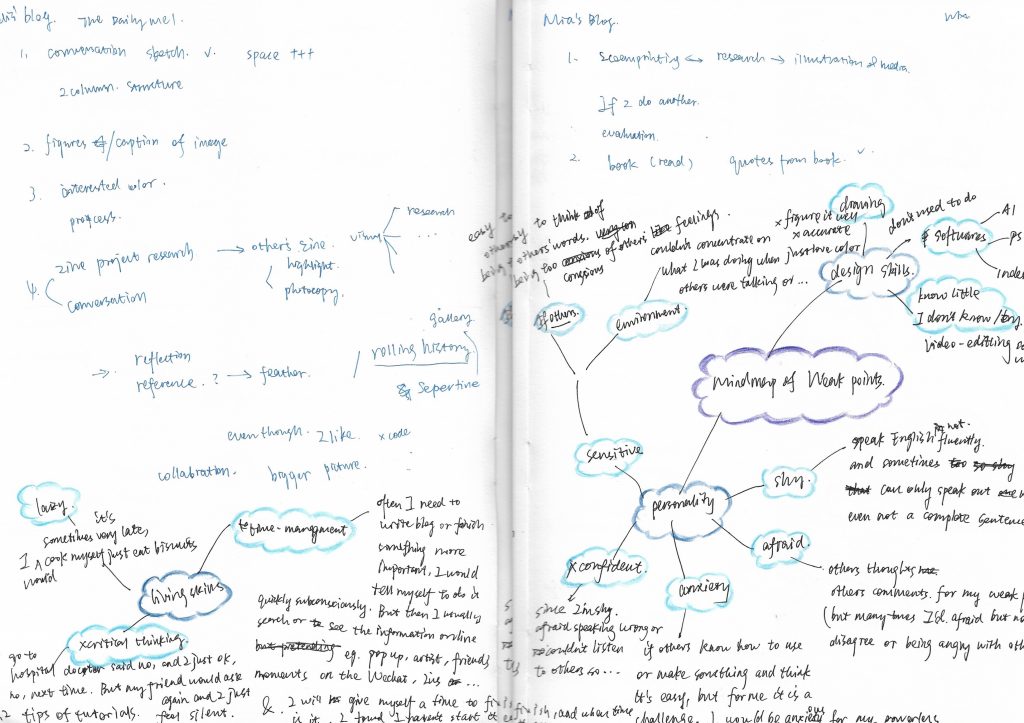 blog. The Daily me1.
1. conversation sketch. v. space +++
2 column. structure
2. figures /caption of image
3. interested color.
process.
4. zine project research → others zine.
highlight.
photocopy.
conversation
visual
research
...
gallery
→ reflection
reference. ? → feather. / rolling history
Sepertine
eventhough. I like. x code
collabration. bigger picture.
lazy.
it's
sometimes very late,
I cook myself just eat biscuits
would
living skills
time-management
often I need to
write blog or finish
something more
important, I would
tell myself to do it
quickly subconsciously. But then I usually
search or see the information online
but pretending eg. pop up, artist, friends
moments on the Wechat, Ins ...
x critical thinking.
go to
hospital doctor said no, and I just ok,
no, next time. But my friend would ask
again and I just
feel silent.
tips of tutorials.
&. I will give myself a time to
is it. I found I haven't start
Mia's Blog.
1. Screenprinting ↔ research → illustration of media.
If I do another.
evaluation.
2. book (read) quotes from book. v.
easy to think of
others' words.
being too of others feelings.
conscious
others.
environment.
couldn't concentrate on
what I was doing when
others were talking or ...
drawing
x figure it very
x accurate
just love color
design skills.
don't used to do
softwares
AI
ps
know little
I don't know/try
video-editting
Mindmap of Weak points.
sensitive
personality
shy.
speak English not fluently.
and sometimes too so shy
that can only speak out
even not a complete sentence
afraid.
others thoughts
others comments. for my weak
(but many times I'd afraid but
disagree or being angry with
x confident
since I'm shy.
afraid speaking wrong or
couldn't listen
to others so...
anxiety
if others know how to use
or make something and think
it's easy, but for me it is a
challenge. I would be anxious for my
finish, and when time